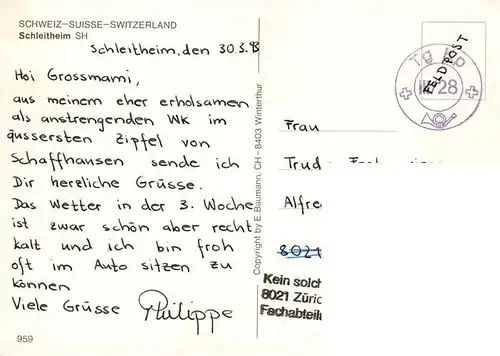 SCHWEIZ–SUISSE–SWITZERLAND
Schleitheim SH
Schleitheim, den 30.3.93
Hoi Grossmami,
aus meinem eher erholsamen
als anstrengenden WK im
äussersten Zipfel von
Schaffhausen sende ich
Dir herzliche Grüsse.
Das Wetter in der 3. Woche
ist zwar schön aber recht
kalt und ich bin froh
oft im Auto sitzen zu
können
Viele Grüsse Philippe
959
Copyright by E. Baumann, CH - 8403 Winterthur
FELDPOST
28
Frau
Trud
Alfre
8021
Kein solch
8021 Züric
Fachabteil